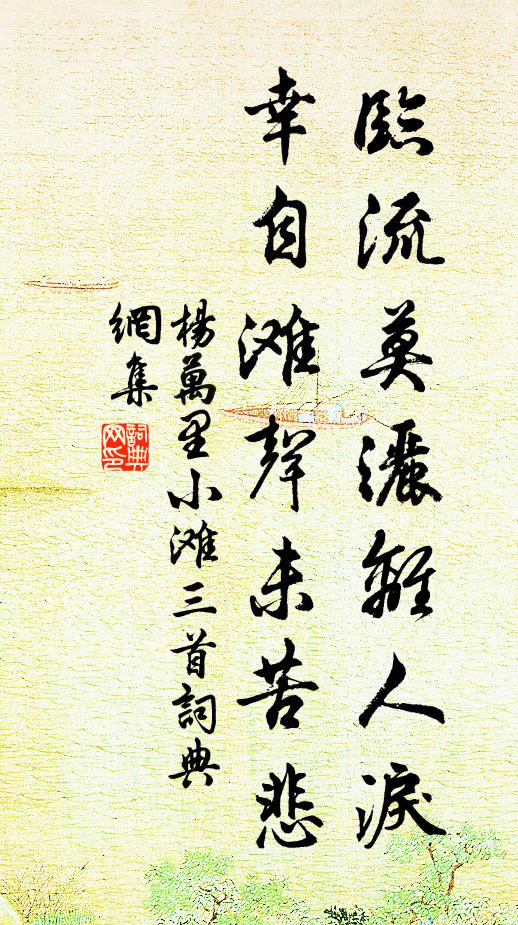 臨流莫灑離人淚
幸自滩聲未苦悲
楊萬里小滩三首詞典
網集
詞典
网印